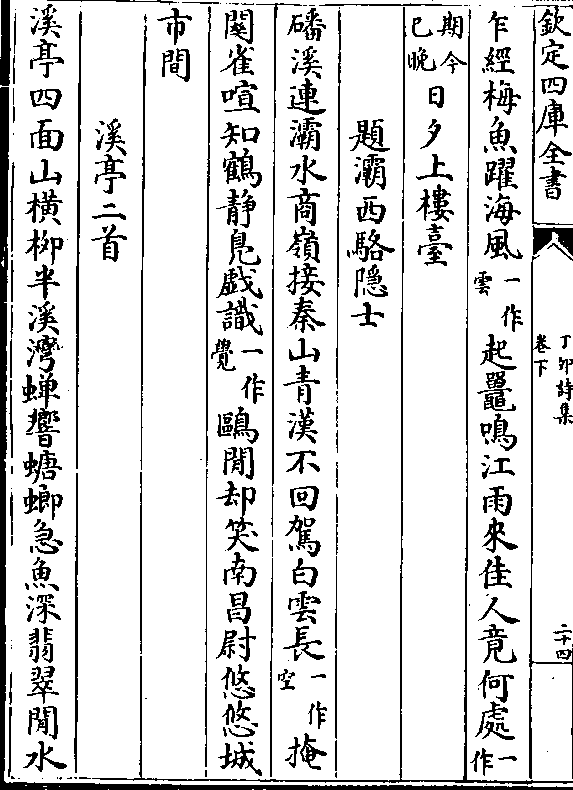 欽定四庫全書
丁卯詩集
卷下
二十四
乍經梅魚躍海風一作雲起鼉鳴江雨來佳人竟何處一作
期今已晚日夕上樓臺
題灞西駱隱士
磻溪連灞水商嶺接秦山青漢不回駕白雲長一作空掩
關雀喧知鶴靜鳧戲識一作覺鷗閒却笑南昌尉悠悠城
市間
溪亭二首
溪亭四面山橫柳半溪灣蟬響螗蜋急魚深翡翠閒水